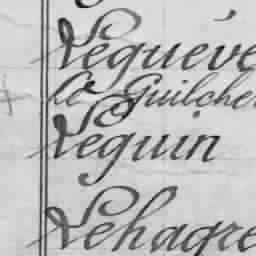 Leguéve
Le Guilcher
Leguin
Lehagre